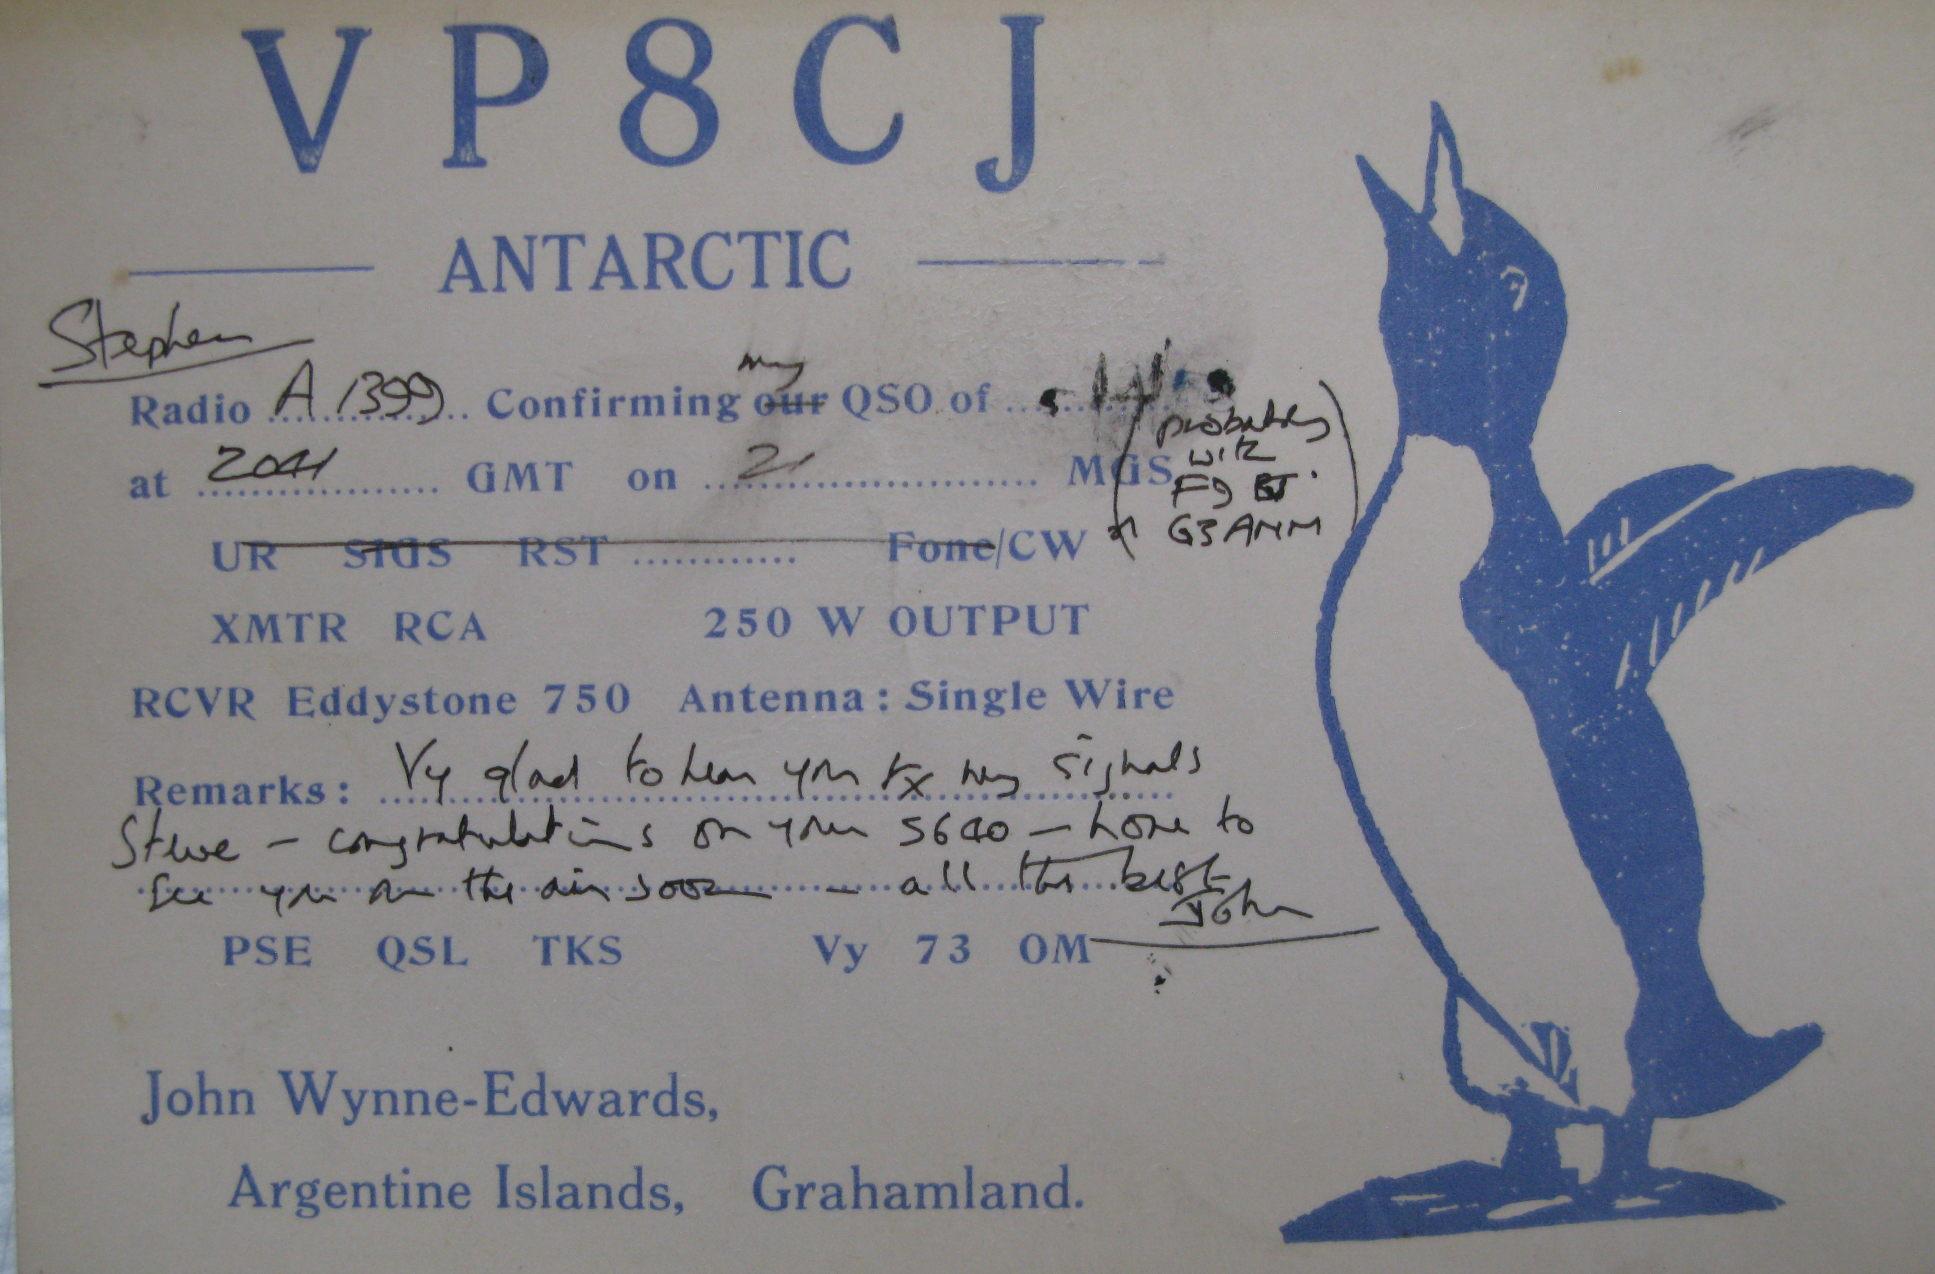 VP8CJ
ANTARCTIC
Stephen
Radio A 1399 Confirming our my QSO of
at 2041 GMT on 21 MGS
(probably
with
F9
or G3ANM)
UR SIGS RST ............ Fone/CW
XMTR RCA 250 W OUTPUT
RCVR Eddystone 750 Antenna: Single Wire
Remarks: Vy glad to hear you rx my signals
Steve - congratulations on your S640 - hope to
see you on the air soon - all the best
John
PSE QSL TKS Vy 73 OM
John Wynne-Edwards,
Argentine Islands, Grahamland.